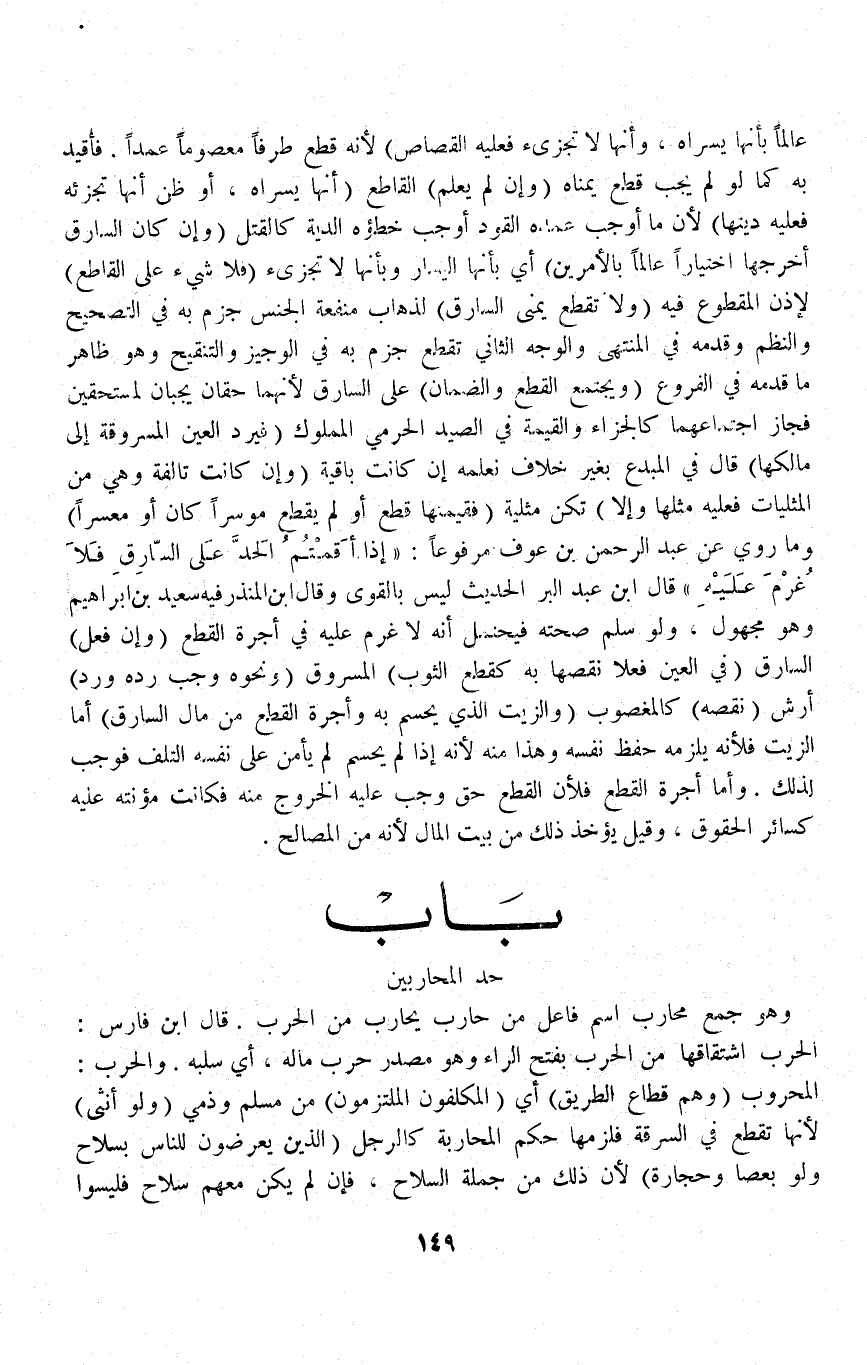 عالماً بأنها يسراه ، وأنها لا تجزىء فعليه القصاص) لأنه قطع طرفاً معصوماً عمداً . فأقيد
به كما لو لم يجب قطع يمناه (وإن لم يعلم) القاطع (أنها يسراه ، أو ظن أنها تجزئه
فعليه ديتها) لأن ما أوجب عمده القود أوجب خطؤه الدية كالقتل (وإن كان السارق
أخرجها اختياراً عالماً بالأمرين) أي بأنها اليسار وبأنها لا تجزىء (فلا شيء على القاطع)
لإذن المقطوع فيه (ولا تقطع يمنى السارق) لذهاب منفعة الجنس جزم به في التصحيح
والنظم وقدمه في المنتهى والوجه الثاني تقطع جزم به في الوجيز والتنقيح وهو ظاهر
ما قدمه في الفروع (ويجتمع القطع والضمان) على السارق لأنهما حقان يجبان لمستحقين
فجاز اجتماعهما كالجزاء والقيمة في الصيد الحرمي المملوك (فيرد العين المسروقة إلى
مالكها) قال في المبدع بغير خلاف نعلمه إن كانت باقية (وإن كانت تالفة وهي من
المثليات فعليه مثلها وإلا) تكن مثلية (فقيمتها قطع أو لم يقطع موسراً كان أو معسراً)
وما روي عن عبد الرحمن بن عوف مرفوعاً : « إذا أَقَمْتُمُ الحَدَّ عَلَى السَّارِقِ فَلَا
غُرْمَ عَلَيْهِ » قال ابن عبد البر الحديث ليس بالقوى وقال ابن المنذر فيه سعيد بن ابراهيم
وهو مجهول ، ولو سلم صحته فيحتمل أنه لا غرم عليه في أجرة القطع (وإن فعل)
السارق (في العين فعلا نقصها به كقطع الثوب) المسروق (ونحوه وجب رده ورد)
أرش (نقصه) كالمغصوب (والزيت الذي يحسم به وأجرة القطع من مال السارق) أما
الزيت فلأنه يلزمه حفظ نفسه وهذا منه لأنه إذا لم يحسم لم يأمن على نفسه التلف فوجب
لذلك . وأما أجرة القطع فلأن القطع حق وجب عليه الخروج منه فكانت مؤنته عليه
كسائر الحقوق ، وقيل يؤخذ ذلك من بيت المال لأنه من المصالح .
بَابْ
حد المحاربين
وهو جمع محارب اسم فاعل من حارب يحارب من الحرب . قال ابن فارس :
الحرب اشتقاقها من الحرب بفتح الراء وهو مصدر حرب ماله ، أي سلبه . والحرب :
المحروب (وهم قطاع الطريق) أي (المكلفون الملتزمون) من مسلم وذمي (ولو أنثى)
لأنها تقطع في السرقة فلزمها حكم المحاربة كالرجل (الذين يعرضون للناس بسلاح
ولو بعصا وحجارة) لأن ذلك من جملة السلاح ، فإن لم يكن معهم سلاح فليسوا
١٤٩